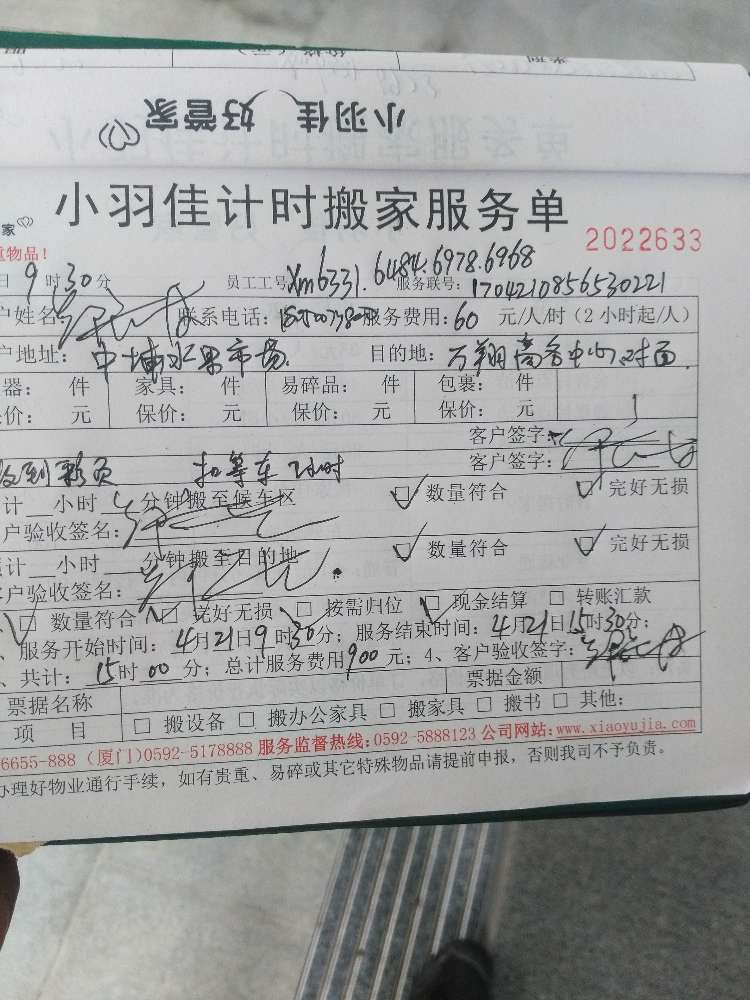 小羽佳 好管家
小羽佳计时搬家服务单
家
2022633
重物品！
日 9 时 30 分 员工工号 Xm6331.6484.6978.6968 服务联号：1704210856530221
户姓名： 联系电话： 服务费用：60 元/人/时（2小时起/人）
户地址：中埔水果市场 目的地：万翔商务中心对面
器： 件 家具： 件 易碎品： 件 包裹： 件
价： 元 保价： 元 保价： 元 保价： 元
客户签字：
客户签字：
扣等车 1小时
计 小时 分钟搬至候车区 □ 数量符合 □ 完好无损
户验收签名：
计 小时 分钟搬至目的地 数量符合 □ 完好无损
户验收签名：
□ 数量符合 □ 完好无损 □ 按需归位 □ 现金结算 □ 转账汇款
、服务开始时间：4月21日9时30分；服务结束时间：4月21日15时30分；
、共计：15时00分；总计服务费用900元；4、客户验收签字：
票据名称 票据金额
项 目 □ 搬设备 □ 搬办公家具 □ 搬家具 □ 搬书 □ 其他：
6655-888（厦门）0592-5178888 服务监督热线：0592-5888123 公司网站：www.xiaoyujia.com
办理好物业通行手续，如有贵重、易碎或其它特殊物品请提前申报，否则我司不予负责。